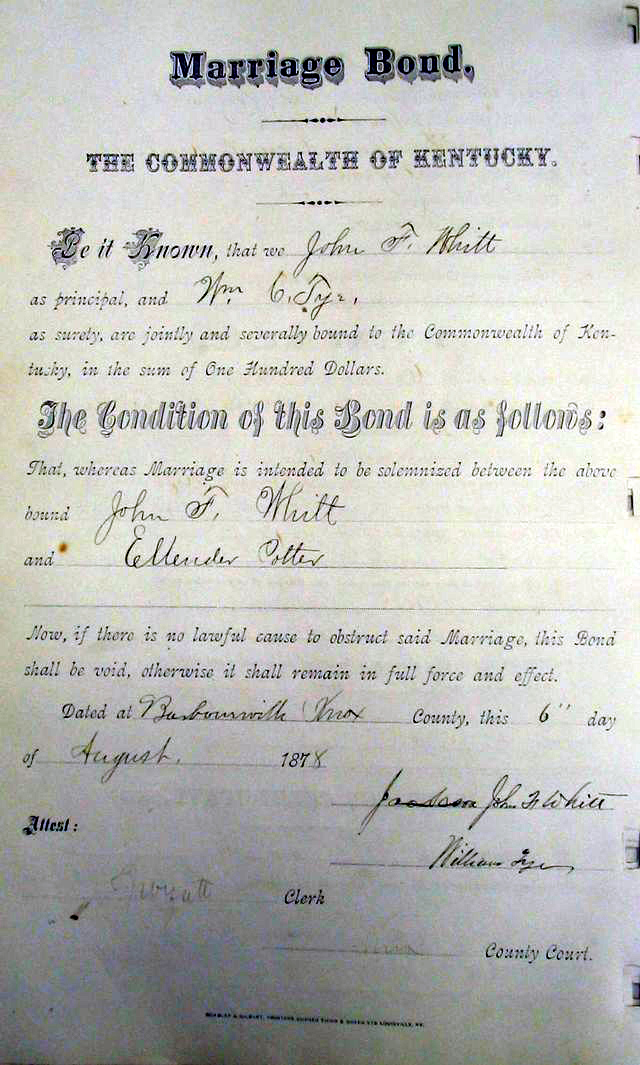 Marriage Bond.
THE COMMONWEALTH OF KENTUCKY.
Be it Known, that we John F. Whitt
as principal, and Wm C. Tye,
as surety, are jointly and severally bound to the Commonwealth of Ken-
tucky, in the sum of One Hundred Dollars.
The Condition of this Bond is as follows:
That, whereas Marriage is intended to be solemnized between the above
bound John F. Whitt
and Ellender Cotter
Now, if there is no lawful cause to obstruct said Marriage, this Bond
shall be void, otherwise it shall remain in full force and effect.
Dated at Barbourville Knox County, this 6" day
of August. 1878
John F. Whitt
Attest:
William Tye
Clerk
County Court.